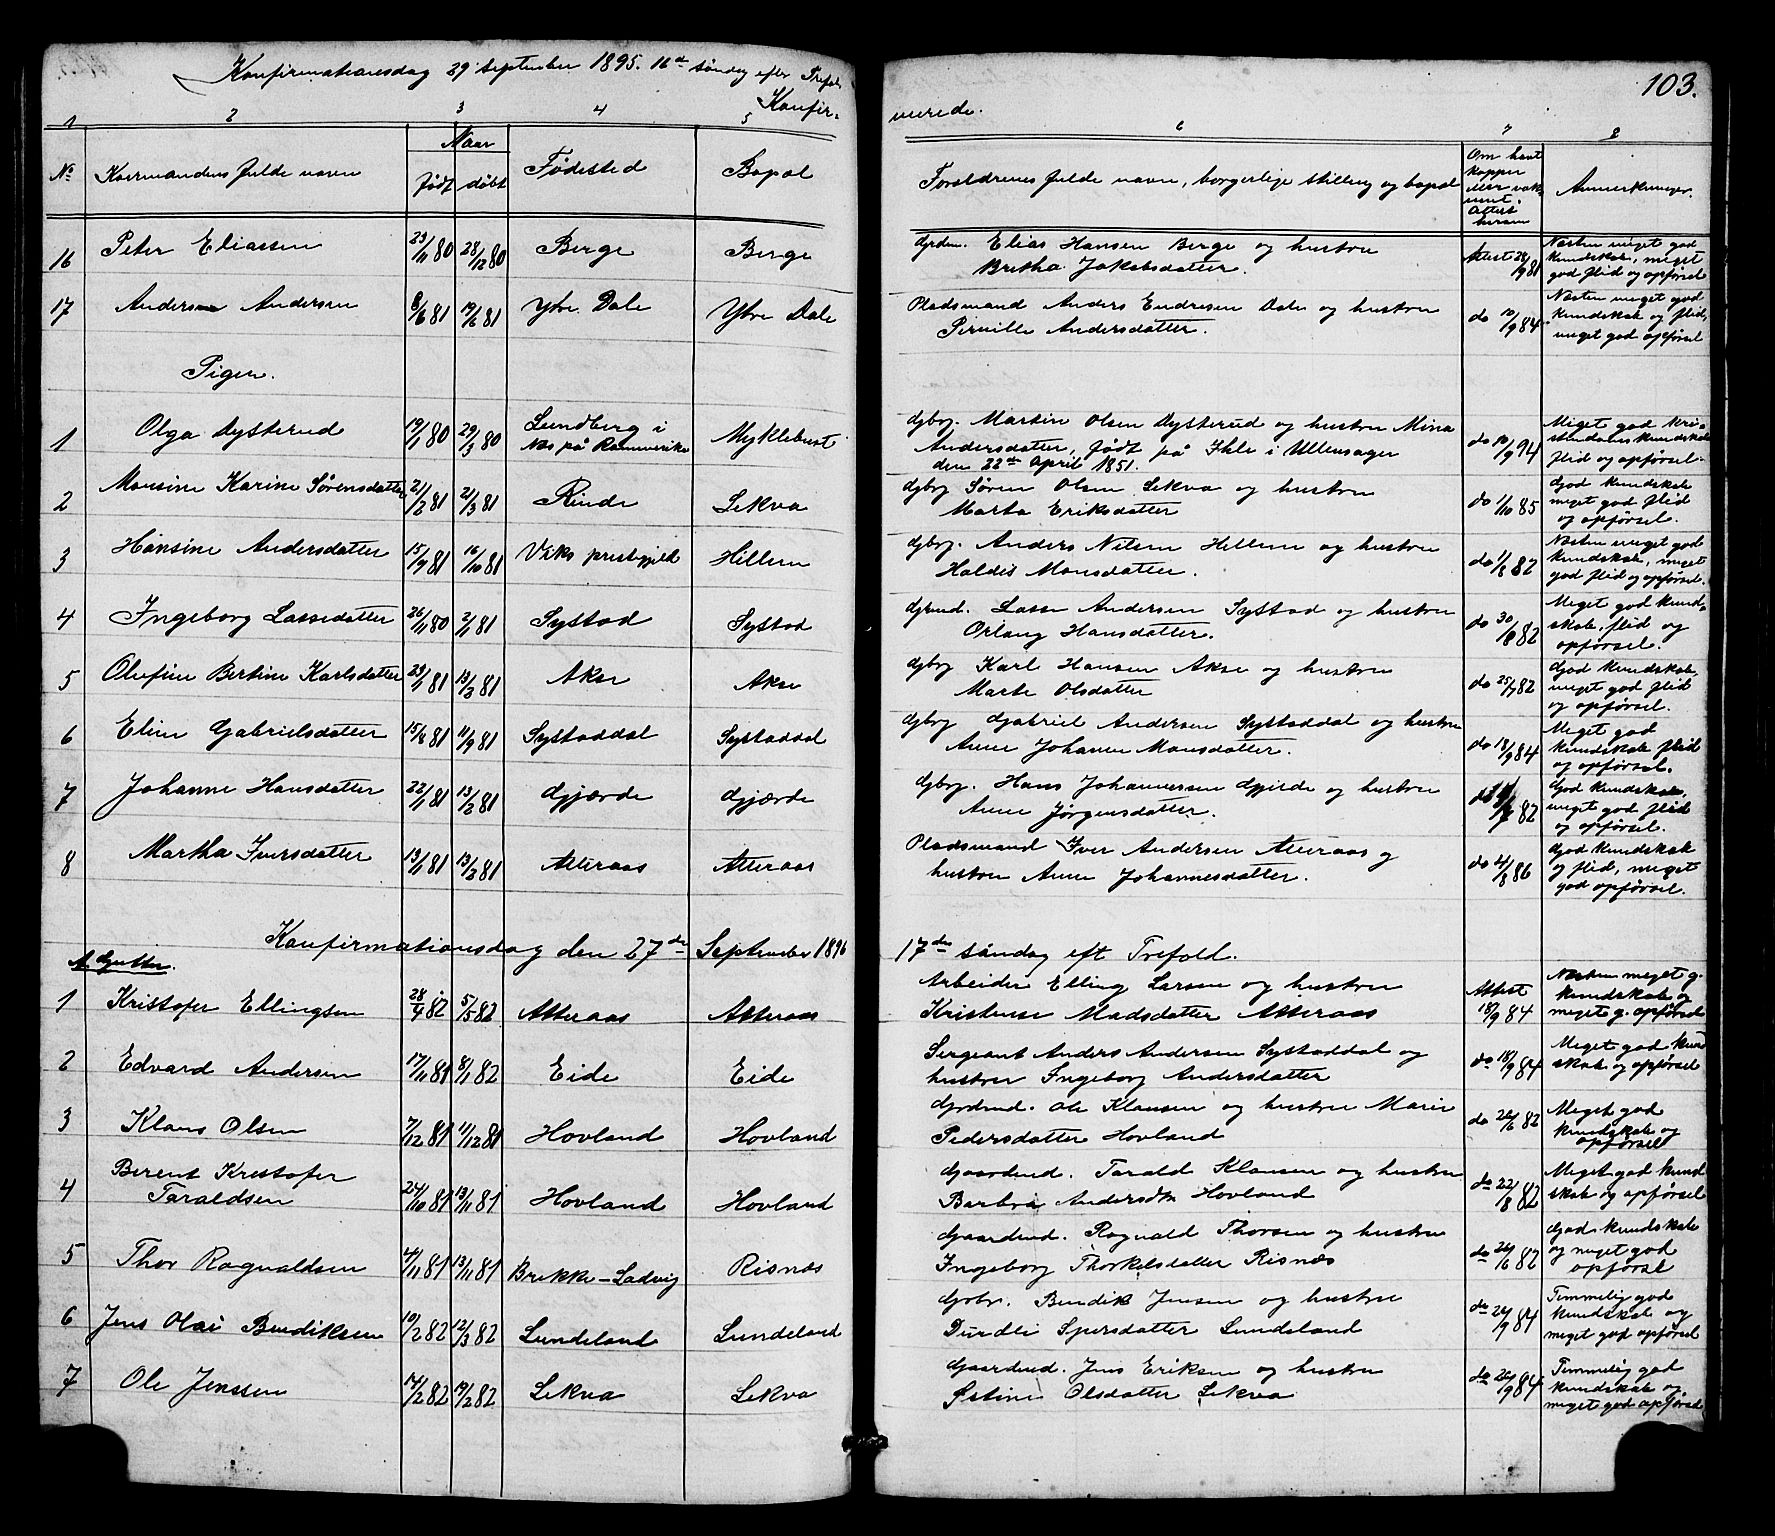 Konfirmationsdag 29 September 1895. 16de søndag efter Trefol.
103.
Konfir-
merede.
1 2 3 4 5 6 7 8
No Konfirmandens fulde navn Naar født døbt Fødested Bopæl Forældrenes fulde navn, borgerlige stilling og bopæl Om havt kopper eller vaks. Attest herom Anmerkninger.
16 Peter Eliassen 23/11 80 28/12 80 Berge Berge Grdm. Elias Hansen Berge og hustru Attest Næsten meget god
Britha Jakobsdatter. kundskab, meget
god flid og opførsel
17 Anders Andersen 8/6 81 19/6 81 Ytre Dale Ytre Dale Pladsmand Anders Endresen Dale og hustru do 10/9 84 Næsten meget god
Pernille Andersdatter. kundskab og flid,
meget god opførsel
Piger.
1 Olga Dysterud 19/1 80 29/3 80 Lundberg i Myklebust Gbrg. Martin Olsen Dysterud og hustru Mina do 10/9 94 Meget god kri-
Nes på Romerike Andersdatter, født på Ihle i Ullensager stendomskundskab
den 22de April 1851. flid og opførsel.
2 Monsine Karine Sørensdatter 21/2 81 21/3 81 Rinde Lekva Gbrg Søren Olsen Lekva og hustru do 1/10 85 God kundskab
Marta Eriksdatter meget god flid
og opførsel.
3 Hansine Andersdatter 15/9 81 16/10 81 Viks prestegjeld Hillem Gbrg. Anders Nilsen Hillem og hustru do 1/8 82 Næsten meget god
Haldis Monsdatter. kundskab, meget
god flid og opførsel.
4 Ingeborg Lassedatter 26/11 80 2/1 81 Systad Systad Grmd. Lasse Andersen Systad og hustru do 30/8 82 Meget god kund-
Orlaug Hansdatter. skab, flid og
opførsel.
5 Olufine Bertine Karlsdatter 23/1 81 13/3 81 Akse Akse Gbrg Karl Hansen Akse og hustru do 25/7 82 God kundskab,
Marte Olsdatter meget god flid
og opførsel.
6 Eline Gabrielsdatter 15/8 81 11/9 81 Systaddal Systaddal Gbrg Gabriel Andersen Systaddal og hustru do 18/9 84 Meget god
Anne Johanne Monsdatter. kundskab flid
og opførsel.
7 Johanne Hansdatter 22/1 81 13/2 81 Gjærde Gjærde Gbrg. Hans Johannesen Gjerde og hustru do 82 God kundskab,
Anne Jørgensdatter. meget god flid
og opførsel.
8 Martha Iversdatter 13/1 81 13/2 81 Atteraas Atteraas Pladsmand Iver Andersen Atteraas og do 4/8 86 God kundskab
hustru Anne Johannesdatter. og flid, meget
god opførsel.
Konfirmationsdag den 27de September 1896 17de søndag eft Trefold.
A. Gutter.
1 Kristofer Ellingsen 28/4 82 5/5 82 Atteraas Atteraas Arbeider Elling Larsen og hustru Attest Næsten meget g.
Kristense Madsdatter Atteraas 18/9 84 kundskab og
meget g. opførsel
2 Edvard Andersen 17/11 81 8/1 82 Eide Eide Sergeant Anders Andersen Systaddal og do 18/9 84 Meget god kund
hustru Ingeborg Andersdatter skab og opførsel
3 Klaus Olsen 7/12 81 11/12 81 Hovland Hovland Grdmd. Ole Klausen og hustru Marie do 26/6 82 Meget god
Pedersdatter Hovland kundskab og
opførsel
4 Berent Kristofer Gaardmd. Tarald Klausen og hustru Meget god kund
Taraldsen 24/10 81 13/11 81 Hovland Hovland Barbra Andersdtr Hovland do 22/8 82 skab og opførsel
5 Thor Ragnaldsen 4/11 81 13/11 81 Brekke-Ladvig Risnæs Gaardmd. Ragnald Thorsen og hustru do 26/6 82 God kundskab
Ingeborg Thorkelsdatter Risnæs og meget god
opførsel
6 Jens Olai Bendiksen 19/2 82 12/3 82 Lundeland Lundeland Grbr. Bendik Jensen og hustru do 26/9 84 Temmelig god
Durdli Spersdatter Lundeland kundskab og
meget god opførsel
7 Ole Jenssen 14/2 82 19/2 82 Lekva Lekva Gaardmd. Jens Eriksen og hustru do 26/9 84 Temmelig god
Østine Olsdatter Lekva kundskab og
meget god opførsel